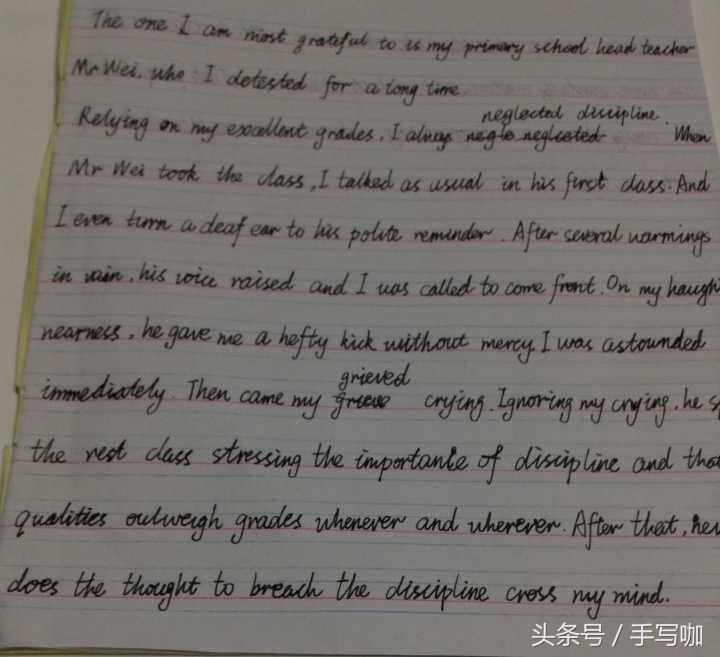 The one I am most grateful to is my primary school head teacher
Mr Wei, who I detested for a long time.
neglected discipline.
Relying on my excellent grades, I always neglo neglected When
Mr Wei took the class, I talked as usual in his first class. And
I even turn a deaf ear to his polite reminder. After several warmings
in vain, his voice raised and I was called to come front. On my haugh
nearness, he gave me a hefty kick without mercy. I was astounded
grieved
immediately. Then came my grieve crying. Ignoring my crying, he s
the rest class stressing the importance of discipline and tha
qualities outweigh grades whenever and wherever. After that,
does the thought to breach the discipline cross my mind.
头条号 / 手写咖